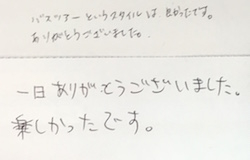 バスツアーというスタイルは良かったです。
ありがとうございました。
一日ありがとうございました。
楽しかったです。